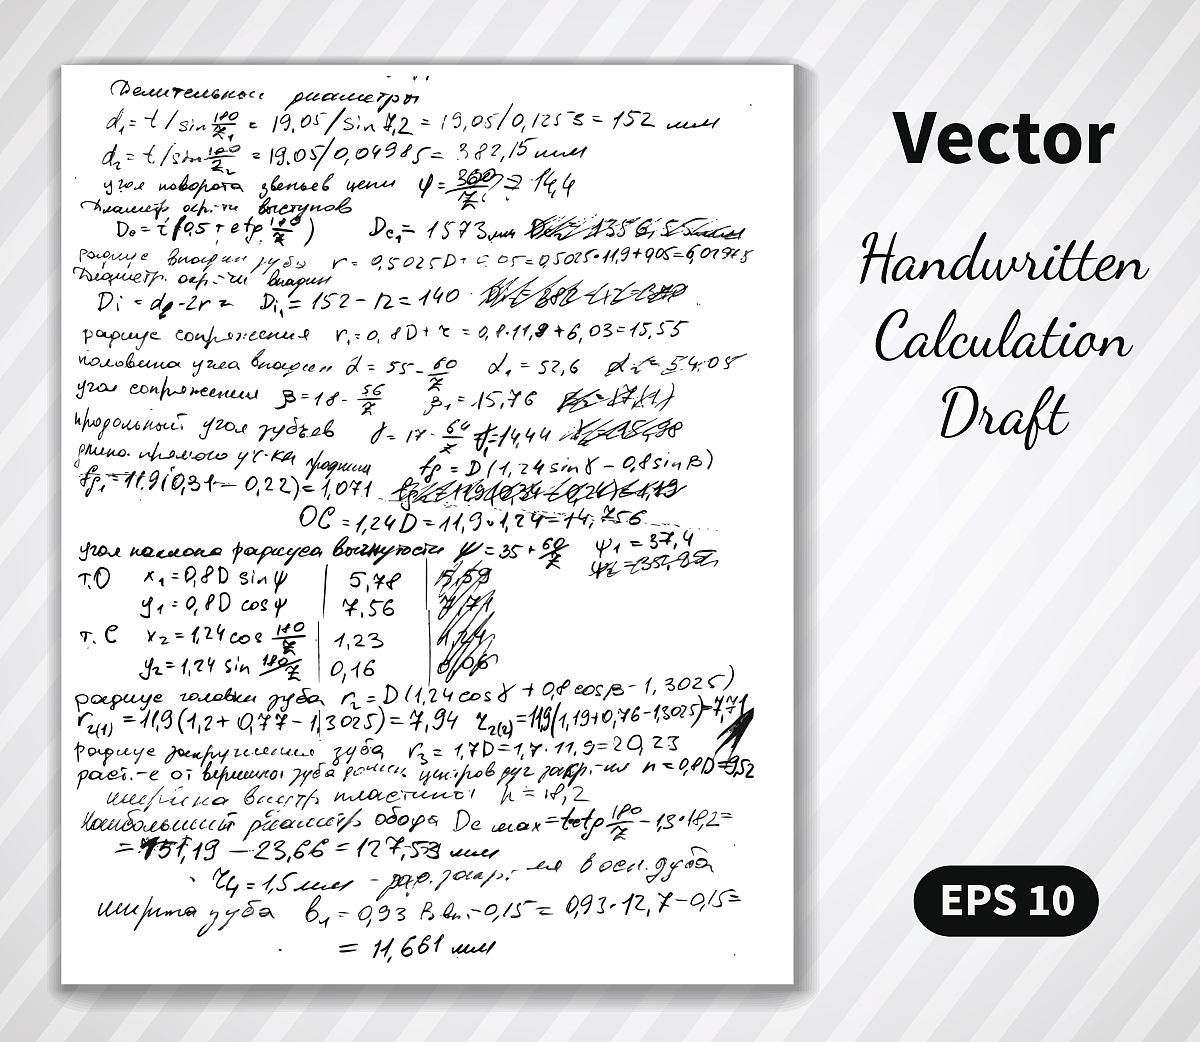 Делительные диаметры
d₁ = t / sin 180/z₁ = 19,05 / sin 7,2 = 19,05 / 0,1253 = 152 мм
d₂ = t / sin 180/z₂ = 19.05 / 0,04985 = 382,15 мм
угол поворота звеньев цепи φ = 360/z = 14,4
Диаметр окр-ти выступов
De = t (0,5 + ctg 180/z) De₁ = 1573 мм
радиус впадин зуба r = 0,5025D + 0,05 = 0,5025·11,9 + 0,05 = 6,02975
Диаметр окр-ти впадин
Di = d₂ - 2r = Di₁ = 152 - 12 = 140
радиус сопряжения r₁ = 0,8D + r = 0,8·11,9 + 6,03 = 15,55
половина угла впадин α = 55 - 60/z α₁ = 52,6
угол сопряжения β = 18 - 56/z β₁ = 15,76
продольный угол зубьев γ = 17 - 64/z γ₁ = 14,44
длина прямого уч-ка профиля fg = D (1,24 sin γ - 0,8 sin β)
fg₁ = 11,9 (0,31 - 0,22) = 1,071
OC = 1,24D = 11,9·1,24 = 14,756
угол наклона радиуса вогнутости ψ = 35 + 60/z ψ₁ = 37,4
т.О x₁ = 0,8D sin ψ 5,78
y₁ = 0,8D cos ψ 7,56
т. С x₂ = 1,24 cos 180/z 1,23
y₂ = 1,24 sin 180/z 0,16
радиус головки зуба r₂ = D (1,24 cos γ + 0,8 cos β - 1,3025)
r₂₍₁₎ = 11,9 (1,2 + 0,77 - 1,3025) = 7,94 r₂₍₂₎ = 11,9 (1,19 + 0,76 - 1,3025) = 7,71
радиус закругления зуба r₃ = 1,7D = 1,7·11,9 = 20,23
раст-е от вершины зуба до центров дуг закр-ия h = 0,8D = 9,52
ширина внутр пластины h = 18,2
Наибольший диаметр обода Dc max = t ctg 180/z - 1,3·18,2 =
= 151,19 - 23,66 = 127,53 мм
r₄ = 1,5 мм - рад. закр-ия в осн. зуба
ширина зуба b₁ = 0,93 Bвн. - 0,15 = 0,93·12,7 - 0,15 =
= 11,661 мм
Vector
Handwritten
Calculation
Draft
EPS 10